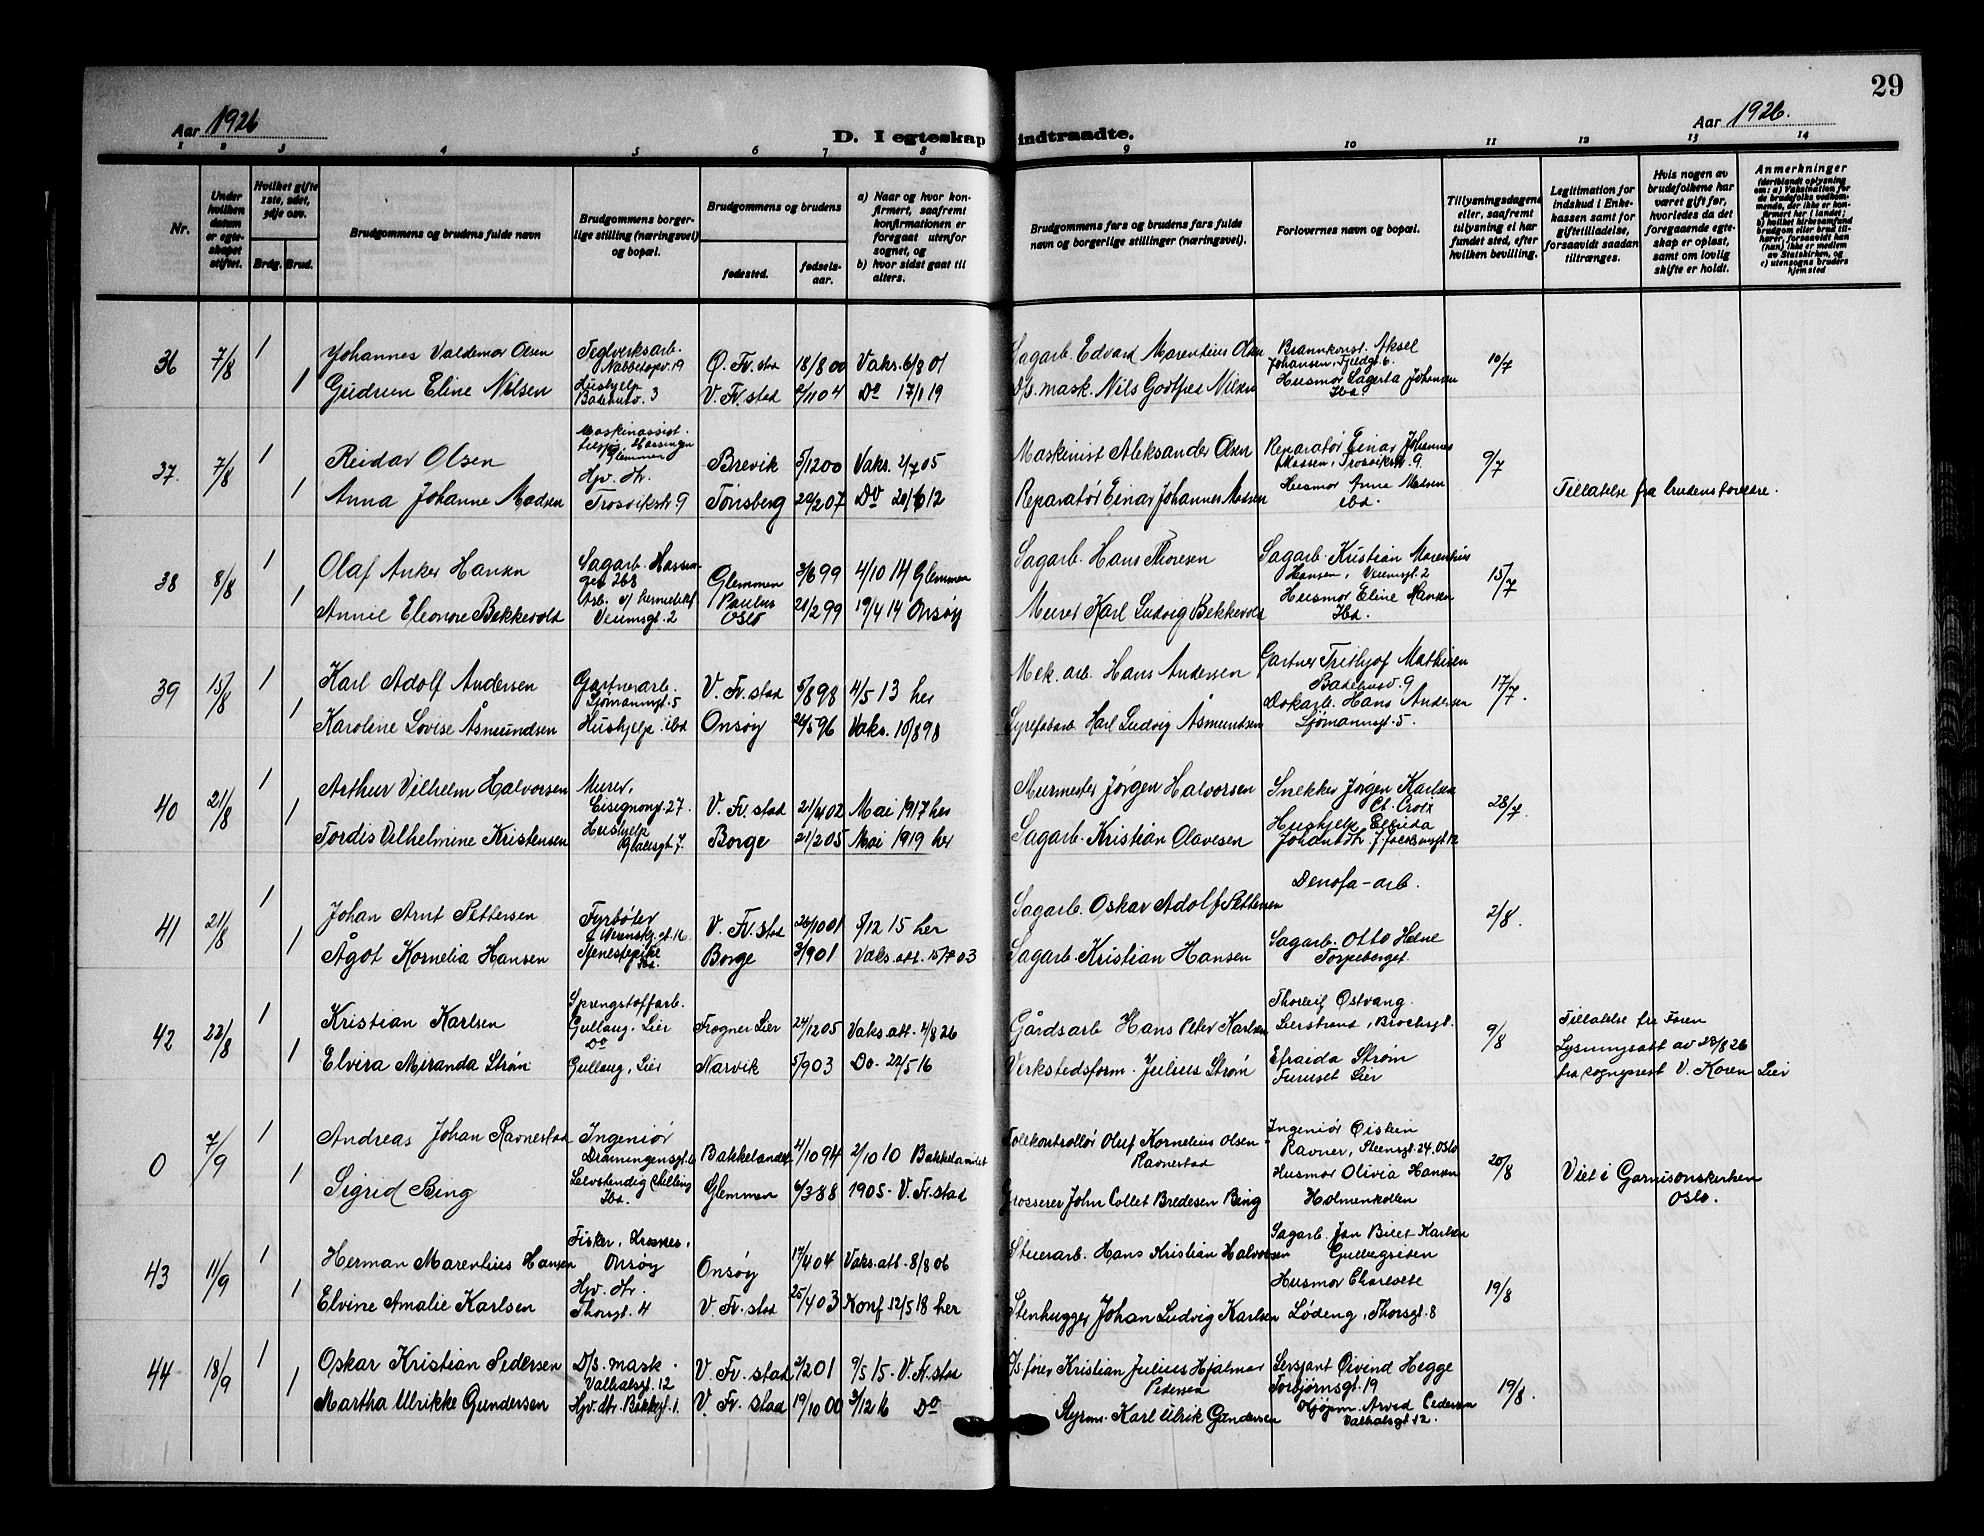 29
Aar 1926
D. I egteskap indtraadte.
Aar 1926.
1 2 3 4 5 6 7 8 9 10 11 12 13 14
Nr.
Under hvilken datum er egteskapet stiftet.
Hvilket gifte 1ste, 2det, 3dje osv.
Brdg. Brud.
Brudgommens og brudens fulde navn
Brudgommens borgerlige stilling (næringsvei) og bopæl.
Brudgommens og brudens
fødested. fødselsaar.
a) Naar og hvor konfirmert, saafremt konfirmationen er foregaat utenfor sognet, og
b) hvor sidst gaat til alters.
Brudgommens fars og brudens fars fulde navn og borgerlige stillinger (næringsvei).
Forlovernes navn og bopæl.
Tillysningsdagene eller, saafremt tillysning ei har fundet sted, efter hvilken bevilling.
Legitimation for indskud i Enkekassen samt for giftetilladelse, forsaavidt saadan tiltrænges.
Hvis nogen av brudefolkene har været gift før, hvorledes da det foregaaende egteskap er opløst, samt om lovlig skifte er holdt.
Anmerkninger
(deriblandt oplysning om: a) Vaksination for de brudefolks vedkommende, der ikke er konfirmert her i landet; b) hvilket kirkesamfund brudgom eller brud tilhører, forsaavidt han (hun) ikke er medlem av Statskirken, og c) utensogns bruders hjemsted
36 7/8 1 Johannes Valdemar Olsen Teglverksarb. Nabbetopv. 19 Ø. Fr.stad 18/8 00 Vaks. 6/8 01 Sagarb. Edvard Marentius Olsen Brannkonst. Aksel Johansen, Fjeldgt. 6. 10/7
1 Gudrun Eline Nilsen Hushjelp Badehusv. 3 V. Fr.stad 2/11 04 Do 17/1 19 D/s. mask. Nils Godtfred Nilsen Husmor Lagerta Johansen Ibd.
37. 7/8 1 Reidar Olsen Maskinassist. Glemmen Brevik 5/12 00 Vaks. 2/7 05 Maskinist Aleksander Olsen Reparatør Einar Johannes Madsen, Trosvikstr. 9. 9/7
1 Anna Johanne Madsen Hjv. dtr. Trosvikstr. 9 Tønsberg 20/2 07 Do 20/6 12 Reparatør Einar Johannes Madsen Husmor Anna Madsen ibd. Tillatelse fra brudens foreldre.
38 8/8 1 Olaf Anker Hansen Sagarb. Hassingen 268 Glemmen 3/6 99 4/10 14 Glemmen Sagarb. Hans Thoresen Sagarb. Kristian Marentius Hansen, Veumsgt. 2 15/7
1 Annie Eleonore Bekkevold Arb. v/ hermetikf. Veumsgt. 2 Paulus Oslo 21/2 99 19/4 14 Onsøy Murer Karl Ludvig Bekkevold Husmor Eline Hansen Ibd.
39 15/8 1 Karl Adolf Andersen Gartnerarb. Sjømannsgt. 5 V. Fr.stad 5/8 98 4/5 13 her Mek. arb. Hans Andersen Gartner Fritjof Mathisen Badehusv. 9 17/7.
1 Karoline Lovise Åsmundsen Hushjelp ibd Onsøy 26/5 96 Vaks. 10/8 98 Syrefabarb. Karl Ludvig Åsmundsen Dokarb. Hans Andersen Sjømannsgt. 5.
40 21/8 1 Arthur Vilhelm Halvorsen Murer, Cicignongt. 27. V. Fr.stad 21/4 02 Mai 1917 her Murmester Jørgen Halvorsen Snekker Jørgen Karlsen Ch. Croix 28/7.
1 Tordis Vilhelmine Kristensen Hushjelp 7 Borge 21/2 05 Mai 1919 her Sagarb. Kristian Olavesen Hushjelp Elfrida
41 21/8 1 Johan Arnt Pettersen Fyrbøter V. Fr.stad 26/10 01 5/12 15 her Sagarb. Oskar Adolf Pettersen Denofa-arb. 2/8.
1 Ågot Kornelia Hansen Tjenestepike Ibd. Borge 3/9 01 Vaks. att. 15/7 03 Sagarb. Kristian Hansen Sagarb. Otto Helne Torpeberget.
42 22/8 1 Kristian Karlsen Sprengstoffarb. Gullaug, Lier Frogner Lier 24/12 05 Vaks. att. 4/8 26 Gårdsarb Hans Peter Karlsen Thorleif Østvang Lierstrand, Brochsgt. 9/8 Tillatelse fra Faren
1 Elvira Miranda Strøm Do Gullaug, Lier Narvik 5/9 03 Do. 22/5 16 Verkstedsform. Julius Strøm Efraida Strøm Furuset Lier Lysningsatt av 22/8 26 fra sogneprest V. Koren Lier
0 7/9 1 Andreas Johan Ravnestad Ingeniør Dronningensgt. 6 Bakkelandet 4/10 94 2/10 10 Bakkelandet Tollkontrollør Oluf Kornelius Olsen Ravnestad Ingeniør Øistein Ravner, Steensgt. 24, Oslo 20/8 Viet i Garnisonskirken Oslo.
1 Sigrid Bing Selvstendig stilling Ibd. Glemmen 6/3 88 1905 - V. Fr.stad Grosserer John Collet Bredesen Bing Husmor Olivia Hansen Holmenkollen
43 11/9 1 Herman Marentius Hansen Fisker, Krosnes, Onsøy Onsøy 17/4 04 Vaks. att. 8/8 06 Stuerarb. Hans Kristian Halvorsen Sagarb. Jon Biret Karlsen Gullbergveien 19/8
1 Elvine Amalie Karlsen Hjv. dtr. Thorsgt. 4 V. Fr. stad 25/4 03 Konf 12/5 18 her Stenhugger Johan Ludvig Karlsen Husmor Charlotte Lødeng, Thorsgt. 8
44 18/9 1 Oskar Kristian Pedersen D/s. mask. Valhalsgt. 12 V. Fr. stad 2/2 01 9/5 15 - V. Fr.stad D/s fører Kristian Julius Hjalmar Pedersen Sersjant Øivind Hegge Torbjørnsgt. 19 19/8.
1 Martha Ulrikke Gundersen Hjv. dtr. Bakkegt. 1. V. Fr. stad 19/10 00 3/12 16 Do Styrm. Karl Ulrik Gundersen Hjøpm. Arvid Pedersen Valhalsgt 12.